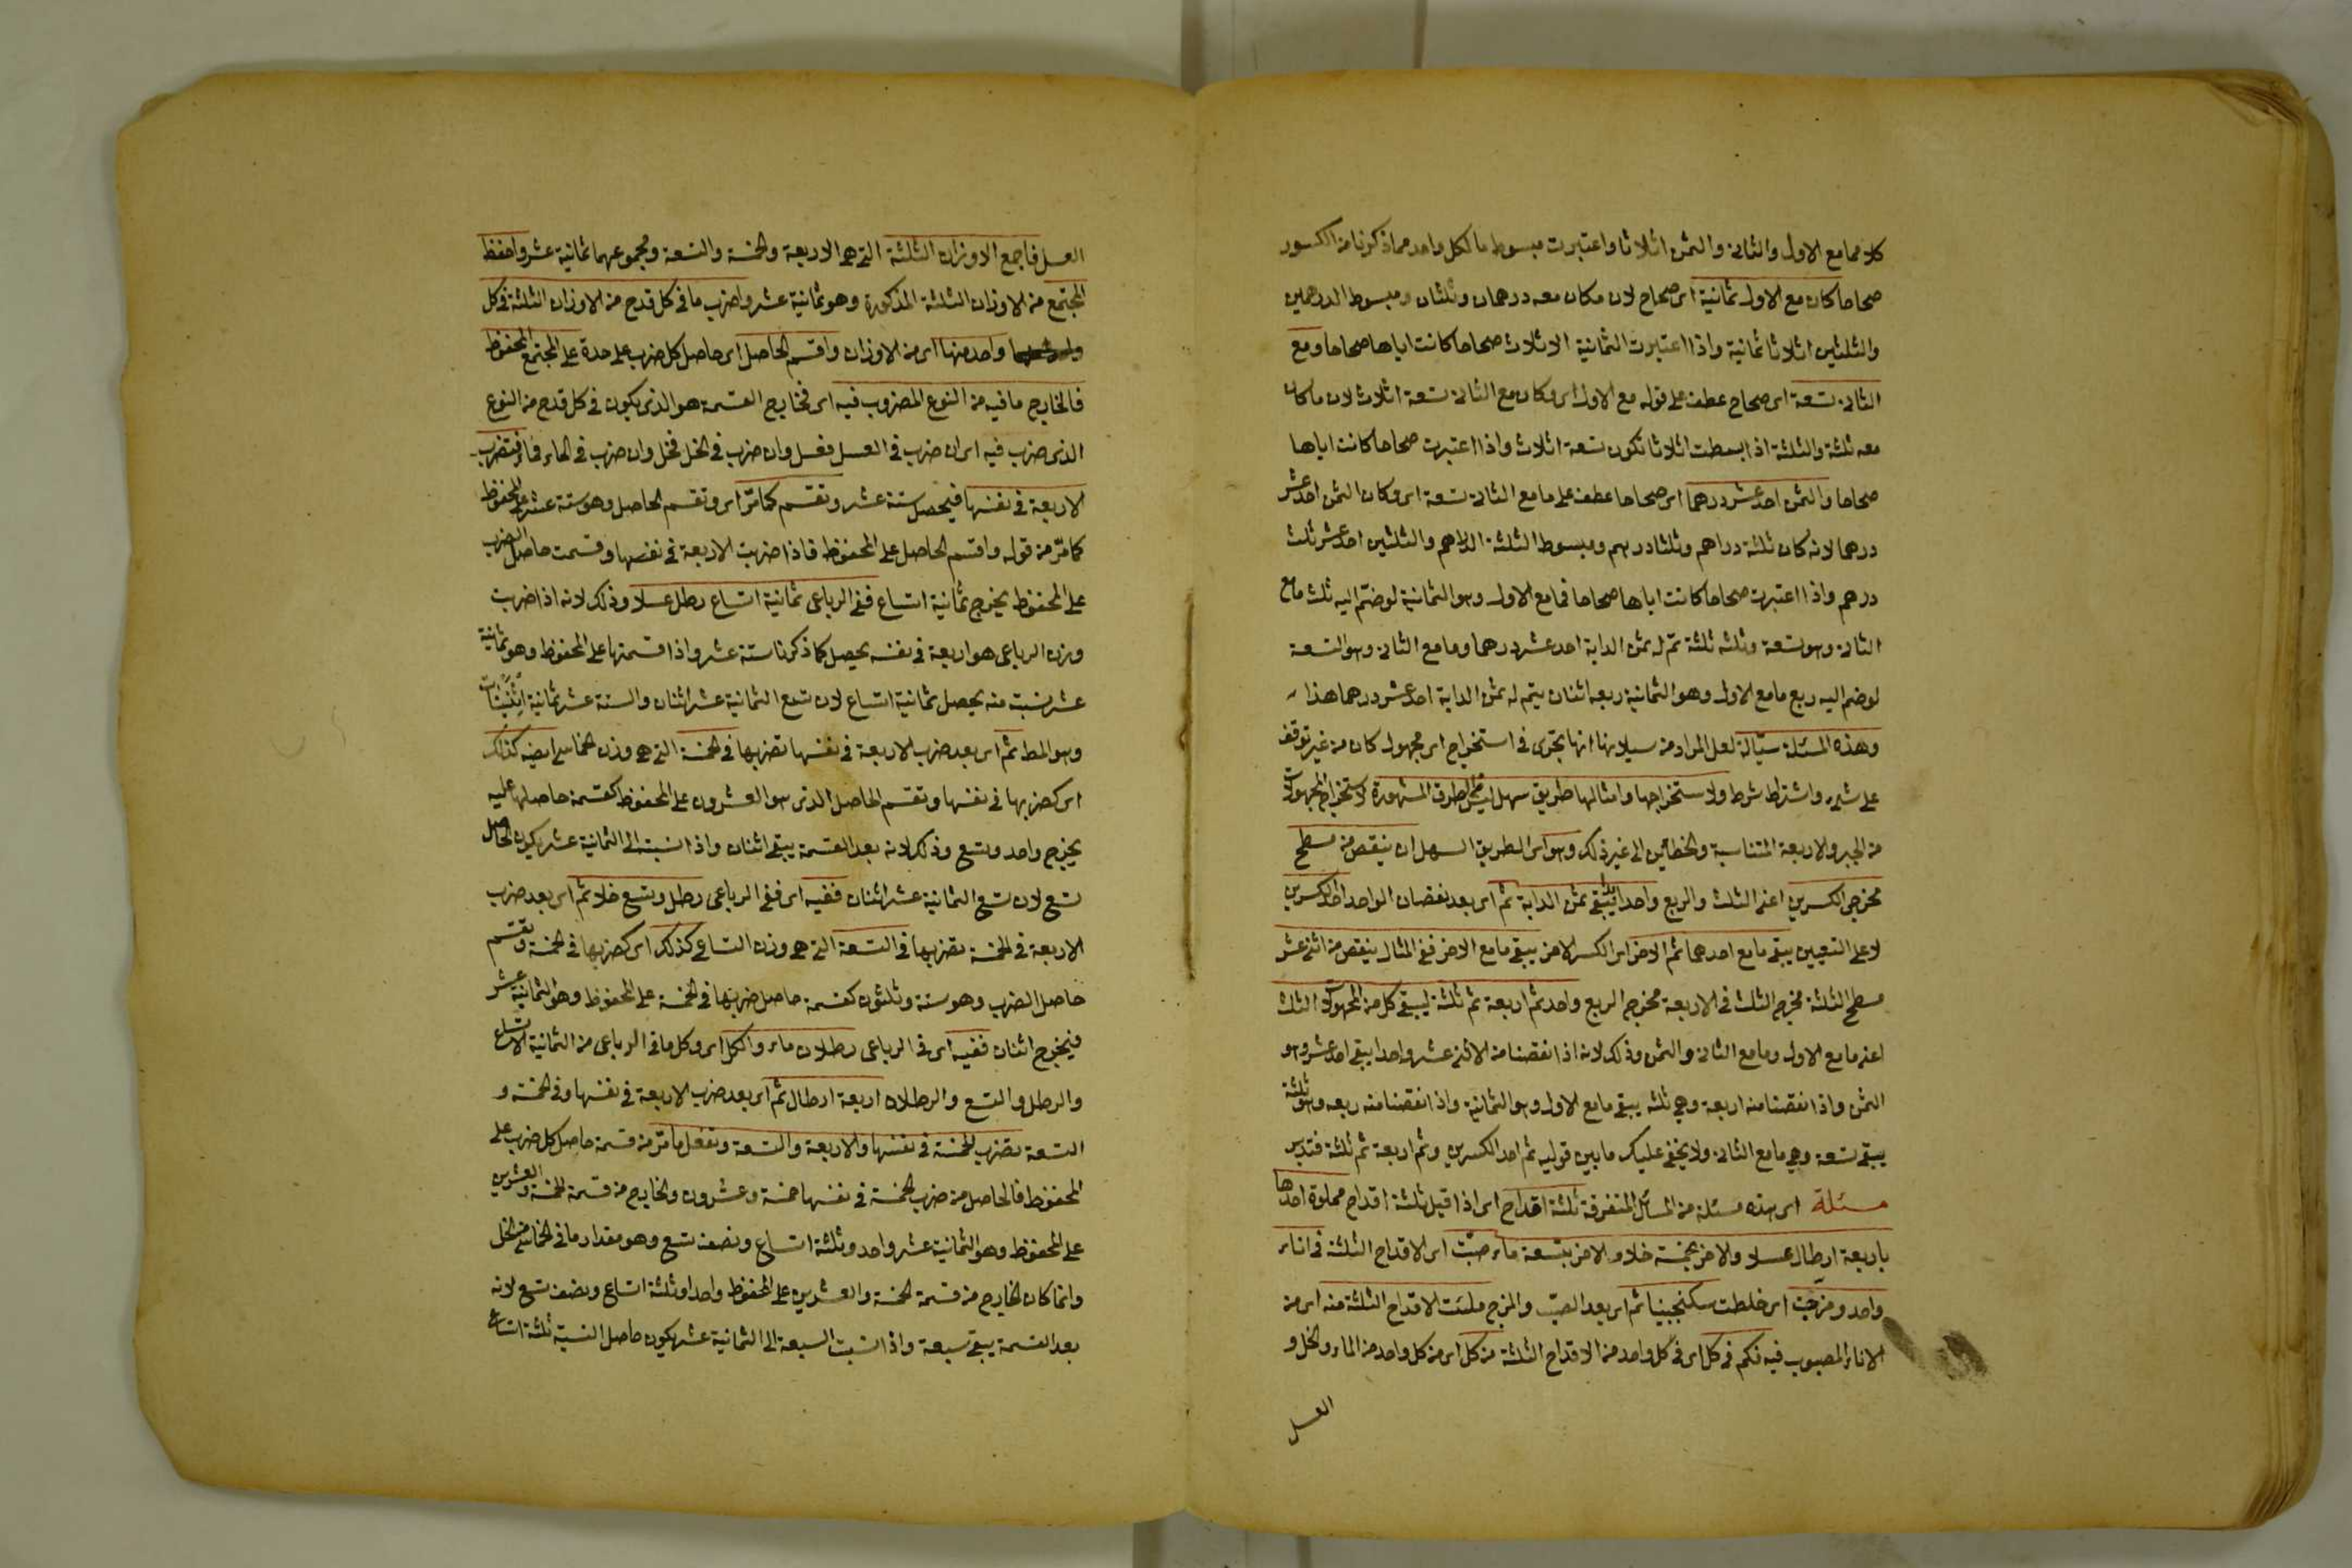 كلاهما مع الاول والثانى والثمن اثلاثا واعتبرت مبسوط ما لكل واحد مما ذكرنا من الكسور
صحاحا كان مع الاول ثمانية اى صحاح لان ما كان معه درهمان وثلثان ومبسوط الدرهمين
والثلثين اثلاثا ثمانية واذا اعتبرت الثمانية الاثلاث صحاحا كانت اياها صحاحا ومع
الثانى تسعة اى صحاح عطف على قوله مع الاول اى وكان مع الثانى تسعة اثلاث لان ما كان
معه ثلثة والثلثة اذا بسطت اثلاثا تكون تسعة اثلاث واذا اعتبرت صحاحا كانت اياها
صحاحا والثمن احد عشر درهما اى صحاحا عطف على ما مع الثانى تسعة اى وكان الثمن احد عشر
درهما لانه كان ثلثة دراهم وثلثا درهم ومبسوط الثلثة الدراهم والثلثين احد عشر ثلث
درهم واذا اعتبرت صحاحا كانت اياها صحاحا فما مع الاول وهو الثمانية لو ضمّ اليه ثلث ما مع
الثانى وهو تسعة وثلثه ثلثة تمّ له ثمن الدابة احد عشر درهما وما مع الثانى وهو التسعة
لو ضم اليه ربع ما مع الاول وهو الثمانية ربعه اثنان يتم له ثمن الدابة احد عشر درهما هذا
وهذه المسئلة سيّالة لعل المراد من سيلانها انها تجرى فى استخراج اى مجهول كان من غير توقف
على شىء واشتراط شرط ولاستخراجها وامثالها طريق سهل ليس من الطرق المشهورة لاستخراج المجهولات
من الجبر والاربعة المتناسبة والخطائين الى غير ذلك وهو اى الطريق السهل ان ينقص من مسطح
مخرجى الكسرين اعنى الثلث والربع واحد ابدا يبقى ثمن الدابة ثم اى بعد نقصان الواحد احد الكسرين
لا على التعيين يبقى ما مع احدهما ثم الاخر اى الكسر الاخر يبقى ما مع الاخر ففى المثال ينقص من اثنى عشر
مسطح الثلثة مخرج الثلث فى الاربعة مخرج الربع واحد ثم اربعة ثم ثلثة ليبقى كل من المجهولات الثلث
اعنى ما مع الاول وما مع الثانى والثمن وذلك لانه اذا نقصنا من الاثنى عشر واحدا يبقى احد عشر وهو
الثمن واذا نقصنا منه اربعة وهى ثلثه يبقى ما مع الاول وهو الثمانية واذا نقصنا منه ربعه وهو ثلثة
يبقى تسعة وهى ما مع الثانى ولا يخفى عليك ما بين قوليه ثم احد الكسرين وثم اربعة ثم ثلثة فتدبر
مسئلة اى هذه مسئلة من المسائل المتفرقة ثلثة اقداح اى اذا قيل ثلثة اقداح مملوة احدها
باربعة ارطال عسلا والاخر بخمسة خلا والاخر بتسعة ماء صبّت اى الاقداح الثلثة فى اناء
واحد ومزجت اى خلطت سكنجبينا ثم اى بعد الصبّ والمزج ملئت الاقداح الثلثة منه اى من
الاناء المصبوب فيه فكم فى كل اى فى كل واحد من الاقداح الثلثة من كل اى من كل واحد من الماء والخل و
العسل
العسل فاجمع الاوزان الثلثة التى هى الاربعة والخمسة والتسعة ومجموعهما ثمانية عشر واحفظ
المجتمع من الاوزان الثلثة المذكورة وهو ثمانية عشر واضرب ما فى كل قدح من الاوزان الثلثة فى كل
واحد منها اى من الاوزان واقسم الحاصل اى حاصل كل ضرب على حدة على المجتمع المحفوظ
فالخارج ما فيه من النوع المضروب فيه اى فخارج القسمة هو الذى يكون فى كل قدح من النوع
الذى ضرب فيه اى ان ضرب فى العسل فعسل وان ضرب فى الخل فخل وان ضرب فى الماء فماء فتضرب
الاربعة فى نفسها فيحصل ستة عشر وتقسم كما مرّ اى وتقسم الحاصل وهو ستة عشر على المحفوظ
كما مرّ من قوله واقسم الحاصل على المحفوظ فاذا ضربت الاربعة فى نفسها وقسمت حاصل الضرب
على المحفوظ يخرج ثمانية اتساع ففى الرباعى ثمانية اتساع رطل عسلا وذلك لانه اذا ضربت
وزن الرباعى هو اربعة فى نفسه يحصل كما ذكرنا ستة عشر واذا قسمتها على المحفوظ وهو ثمانية
عشر نسبت منه يحصل ثمانية اتساع لان تسع الثمانية عشر اثنان والستة عشر ثمانية اثنينات
وهو المط ثم اى بعد ضرب الاربعة فى نفسها تضربها فى الخمسة التى هى وزن الخماسى ايضه كذلك
اى كضربها فى نفسها وتقسم الحاصل الذى هو العشرون على المحفوظ كقسمة حاصلها عليه
يخرج واحد وتسع وذلك لانه بعد القسمة يبقى اثنان واذا نسبت الى الثمانية عشر يكون الحاصل
تسع لان تسع الثمانية عشر اثنان ففيه اى ففى الرباعى رطل وتسع خلا ثم اى بعد ضرب
الاربعة فى الخمسة تضربها فى التسعة التى هى وزن التساعى كذلك اى كضربها فى الخمسة وتقسم
حاصل الضرب وهو ستة وثلثون كقسمة حاصل ضربها فى الخمسة على المحفوظ وهو الثمانية عشر
فيخرج اثنان ففيه اى فى الرباعى رطلان ماء والكل اى وكل ما فى الرباعى من الثمانية الاتساع
والرطل والتسع والرطلان اربعة ارطال ثم اى بعد ضرب الاربعة فى نفسها وفى الخمسة و
التسعة تضرب الخمسة فى نفسها والاربعة والتسعة وتفعل ما مرّ من قسمة حاصل كل ضرب على
المحفوظ فالحاصل من ضرب الخمسة فى نفسها خمسة وعشرون والخارج من قسمة الخمسة والعشرين
على المحفوظ وهو الثمانية عشر واحد وثلثة اتساع ونصف تسع وهو مقدار ما فى الخماسى من الخل
وانما كان الخارج من قسمة الخمسة والعشرين على المحفوظ واحدا وثلثة اتساع ونصف تسع لانه
بعد القسمة يبقى سبعة واذا نسبت السبعة الى الثمانية عشر يكون حاصل النسبة ثلثة اتساع